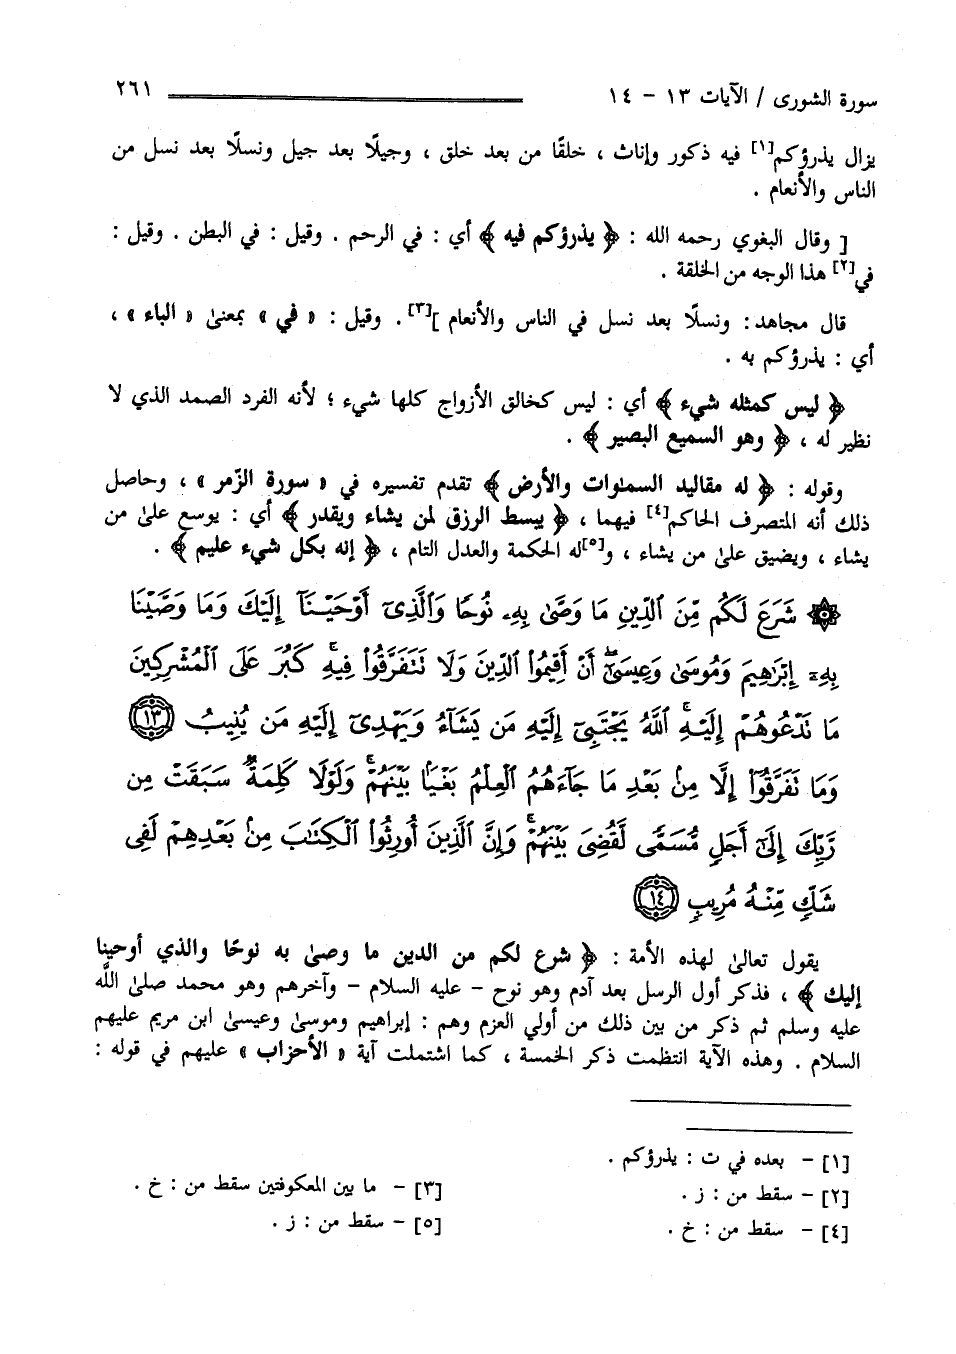 سورة الشورى / الآيات ١٣ - ١٤ ٢٦١
يزال يذرؤكم[١] فيه ذكور وإناث ، خلقًا من بعد خلق ، وجيلًا بعد جيل ونسلًا بعد نسل من
الناس والأنعام .
[ وقال البغوي رحمه الله : ﴿ يذرؤكم فيه ﴾ أي : في الرحم . وقيل : في البطن . وقيل :
في[٢] هذا الوجه من الخلقة .
قال مجاهد : ونسلًا بعد نسل في الناس والأنعام ][٣] . وقيل : « في » بمعنىٰ « الباء » ،
أي : يذرؤكم به .
﴿ ليس كمثله شيء ﴾ أي : ليس كخالق الأزواج كلها شيء ؛ لأنه الفرد الصمد الذي لا
نظير له ، ﴿ وهو السميع البصير ﴾ .
وقوله : ﴿ له مقاليد السمٰوات والأرض ﴾ تقدم تفسيره في « سورة الزّمر » ، وحاصل
ذلك أنه المتصرف الحاكم[٤] فيهما ، ﴿ يبسط الرزق لمن يشاء ويقدر ﴾ أي : يوسع علىٰ من
يشاء ، ويضيق علىٰ من يشاء ، و[٥]له الحكمة والعدل التام ، ﴿ إنه بكل شيء عليم ﴾ .
۞ شَرَعَ لَكُم مِّنَ ٱلدِّينِ مَا وَصَّىٰ بِهِۦ نُوحًا وَٱلَّذِىٓ أَوْحَيْنَآ إِلَيْكَ وَمَا وَصَّيْنَا
بِهِۦٓ إِبْرَٰهِيمَ وَمُوسَىٰ وَعِيسَىٰٓ ۖ أَنْ أَقِيمُوا۟ ٱلدِّينَ وَلَا تَتَفَرَّقُوا۟ فِيهِ ۚ كَبُرَ عَلَى ٱلْمُشْرِكِينَ
مَا تَدْعُوهُمْ إِلَيْهِ ۚ ٱللَّهُ يَجْتَبِىٓ إِلَيْهِ مَن يَشَآءُ وَيَهْدِىٓ إِلَيْهِ مَن يُنِيبُ ١٣
وَمَا تَفَرَّقُوٓا۟ إِلَّا مِنۢ بَعْدِ مَا جَآءَهُمُ ٱلْعِلْمُ بَغْيًۢا بَيْنَهُمْ ۚ وَلَوْلَا كَلِمَةٌ سَبَقَتْ مِن
رَّبِّكَ إِلَىٰٓ أَجَلٍ مُّسَمًّى لَّقُضِىَ بَيْنَهُمْ ۚ وَإِنَّ ٱلَّذِينَ أُورِثُوا۟ ٱلْكِتَٰبَ مِنۢ بَعْدِهِمْ لَفِى
شَكٍّ مِّنْهُ مُرِيبٍ ١٤
يقول تعالىٰ لهذه الأمة : ﴿ شرع لكم من الدين ما وصىٰ به نوحًا والذي أوحينا
إليك ﴾ ، فذكر أول الرسل بعد آدم وهو نوح - عليه السلام - وآخرهم وهو محمد صلىٰ اللَّه
عليه وسلم ثم ذكر من بين ذلك من أولي العزم وهم : إبراهيم وموسىٰ وعيسىٰ ابن مريم عليهم
السلام . وهذه الآية انتظمت ذكر الخمسة ، كما اشتملت آية « الأحزاب » عليهم في قوله :
[١] - بعده في ت : يذرؤكم .
[٢] - سقط من : ز . [٣] - ما بين المعكوفتين سقط من : خ .
[٤] - سقط من : خ . [٥] - سقط من : ز .